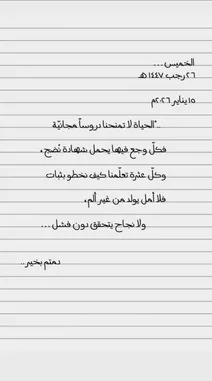 الخميس ...
٢٦ رجب ١٤٤٧ هـ
١٥ يناير ٢٠٢٦م
.."الحياة لا تمنحنا دروساً مجانيّة
فكلّ وجع فيها يحمل شهادة نُضج،
وكلّ عثرة تعلّمنا كيف نخطو بثبات
فلا أمل يولد من غير ألم،
ولا نجاح يتحقق دون فشل ...
دمتم بخير..